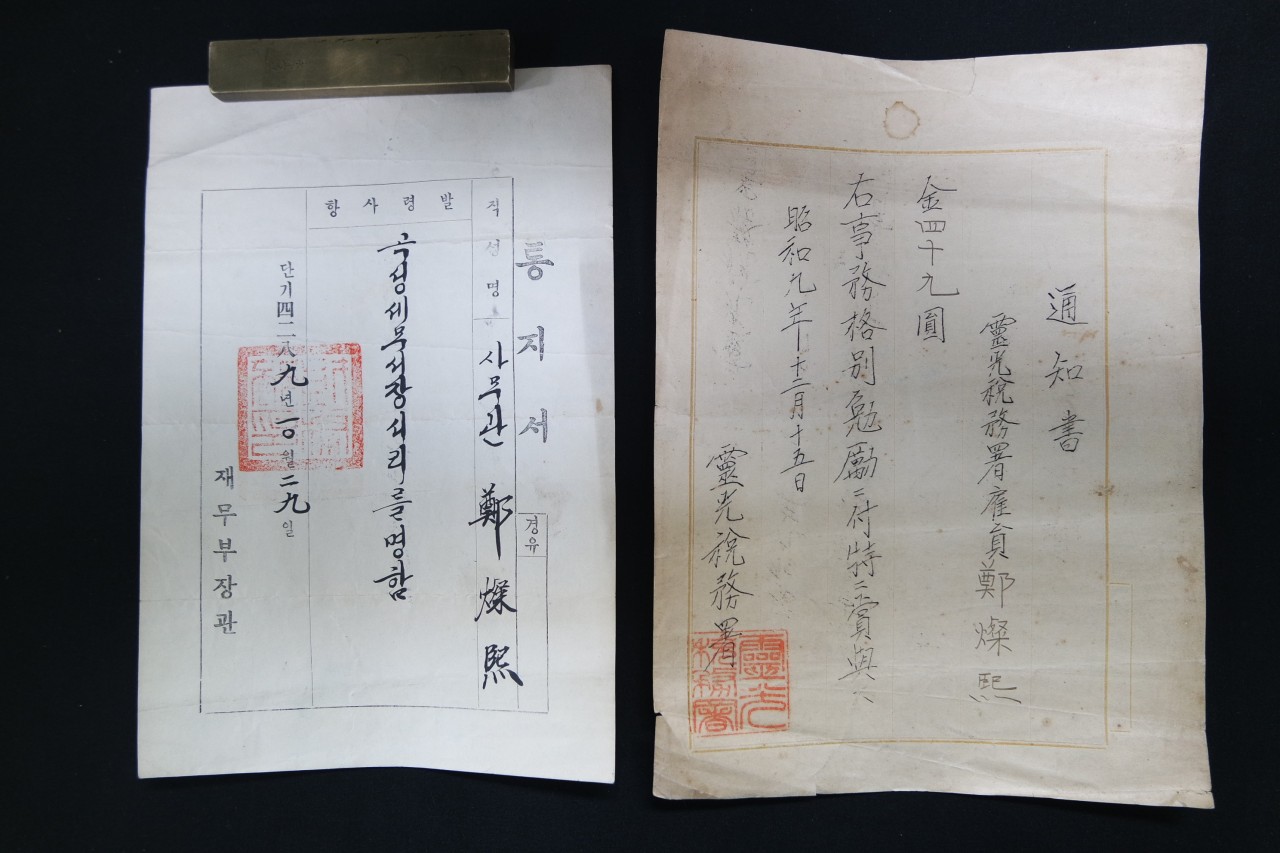 통지서
경유
직 성명
사무관 鄭燦熙
발령사항
곡성세무서장서리를명함
단기四二八九년一〇월二九일
재무부장관
通知書
靈光稅務署雇員鄭燦熙
金四十九圓
右事務格別勉勵ニ付特ニ賞與ス
昭和九年十二月十五日
靈光稅務署
靈光
稅務署